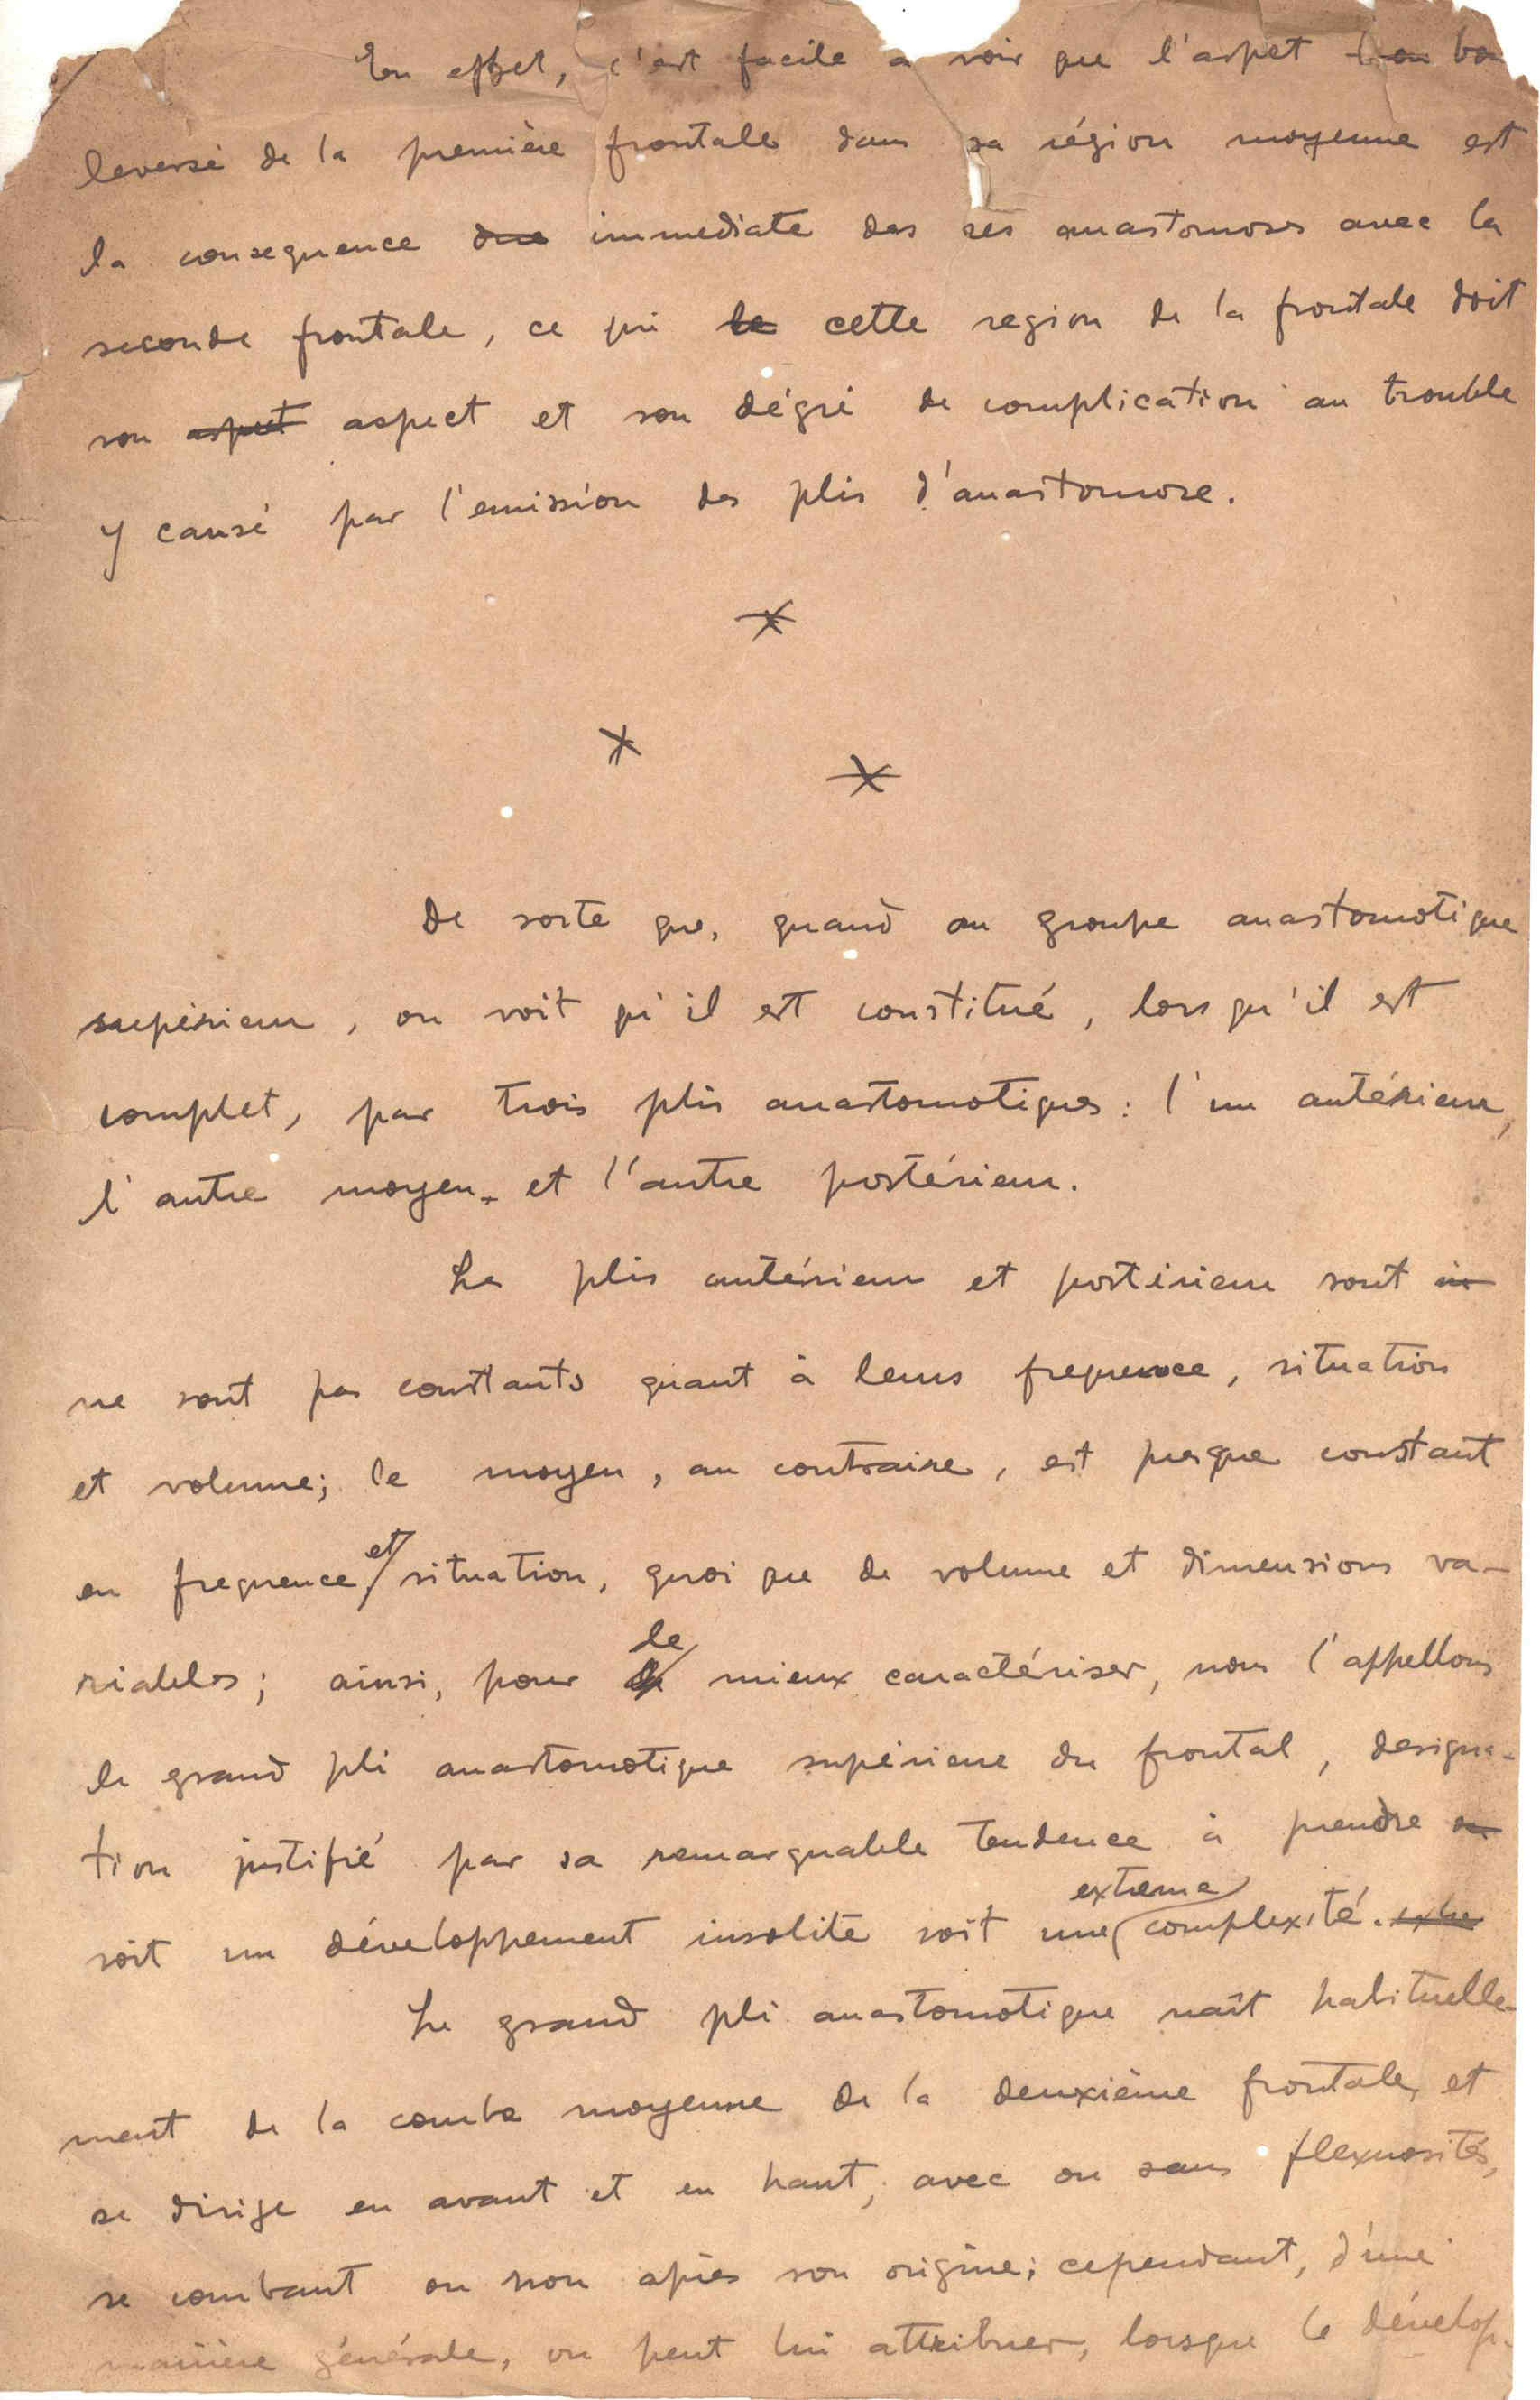 En effet, c'est facile a voir que l'aspet bou
leversé de la première frontale dans sa région moyenne est
la consequence due immediate des ses anastomoses avec la
seconde frontale, ce qui le cette region de la frontale doit
son aspect aspect et son dégré de complication au trouble
y causé par l'emission des plis d'anastomose.
*
* *
De sorte que, quand au groupe anastomotique
supérieur, on voit qu'il est constitué, lorsqu'il est
complet, par trois plis anastomotiques: l'un antérieur,
l'autre moyen et l'autre postérieur.
Les plis antérieur et postérieur sont in
ne sont pas constants quant à leurs frequence, situation
et volume; le moyen, au contraire, est presque constant
en frequence et situation, quoi que de volume et dimensions va-
riables; ainsi, pour le mieux caractériser, nous l'appellons
le grand pli anastomotique supérieur du frontal, designa-
tion justifié par sa remarquable tendence à prendre
soit un développement insolite soit une extreme complexité. extre
Le grand pli anastomotique naît habituelle-
ment de la courbe moyenne de la deuxième frontale, et
se dirige en avant et en haut, avec ou sans flexuosités,
se courbant ou non après son origine; cependant, d'une
manière générale, on peut lui attribuer, lorsque le dévelop-